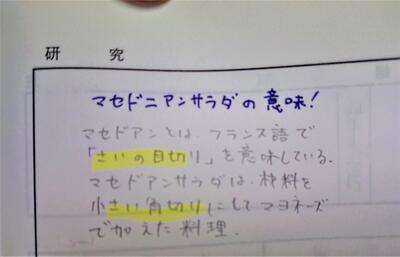 研究
マセドニアンサラダの意味!
マセドアンとは、フランス語で
「さいの目切り」を意味している。
マセドアンサラダは、材料を
小さい角切りにしてマヨネーズ
で加えた料理。